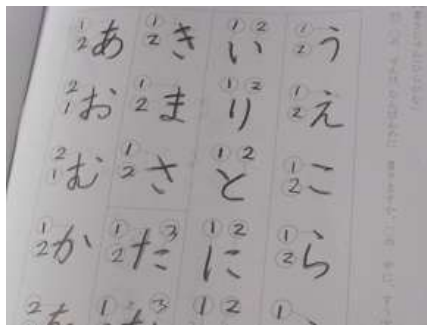 1 2 あ 1 2 き 1 2 い 1 2 う
2 1 お 1 2 ま 1 2 り 1 2 え
2 1 む 1 2 さ 1 2 と 1 2 こ
1 2 か 1 2 3 た 1 2 に 1 2 ら
2 1 3 1 2 1